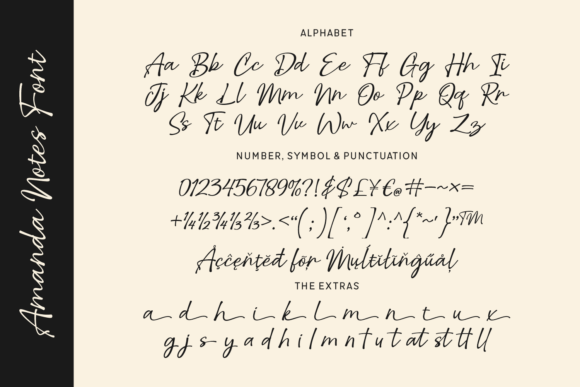 Amanda Notes Font
ALPHABET
Aa Bb Cc Dd Ee Ff Gg Hh Ii
Jj Kk Ll Mm Nn Oo Pp Qq Rr
Ss Tt Uu Vv Ww Xx Yy Zz
NUMBER, SYMBOL & PUNCTUATION
0123456789%?!&$£¥€@#—~×=
+¼½¾⅓⅔>.<“(;)[‘,°]^:^{*~’}”™
THE EXTRAS
a d h i k l m n t u x
g j s y a d h i l m n t u t at st tt ll